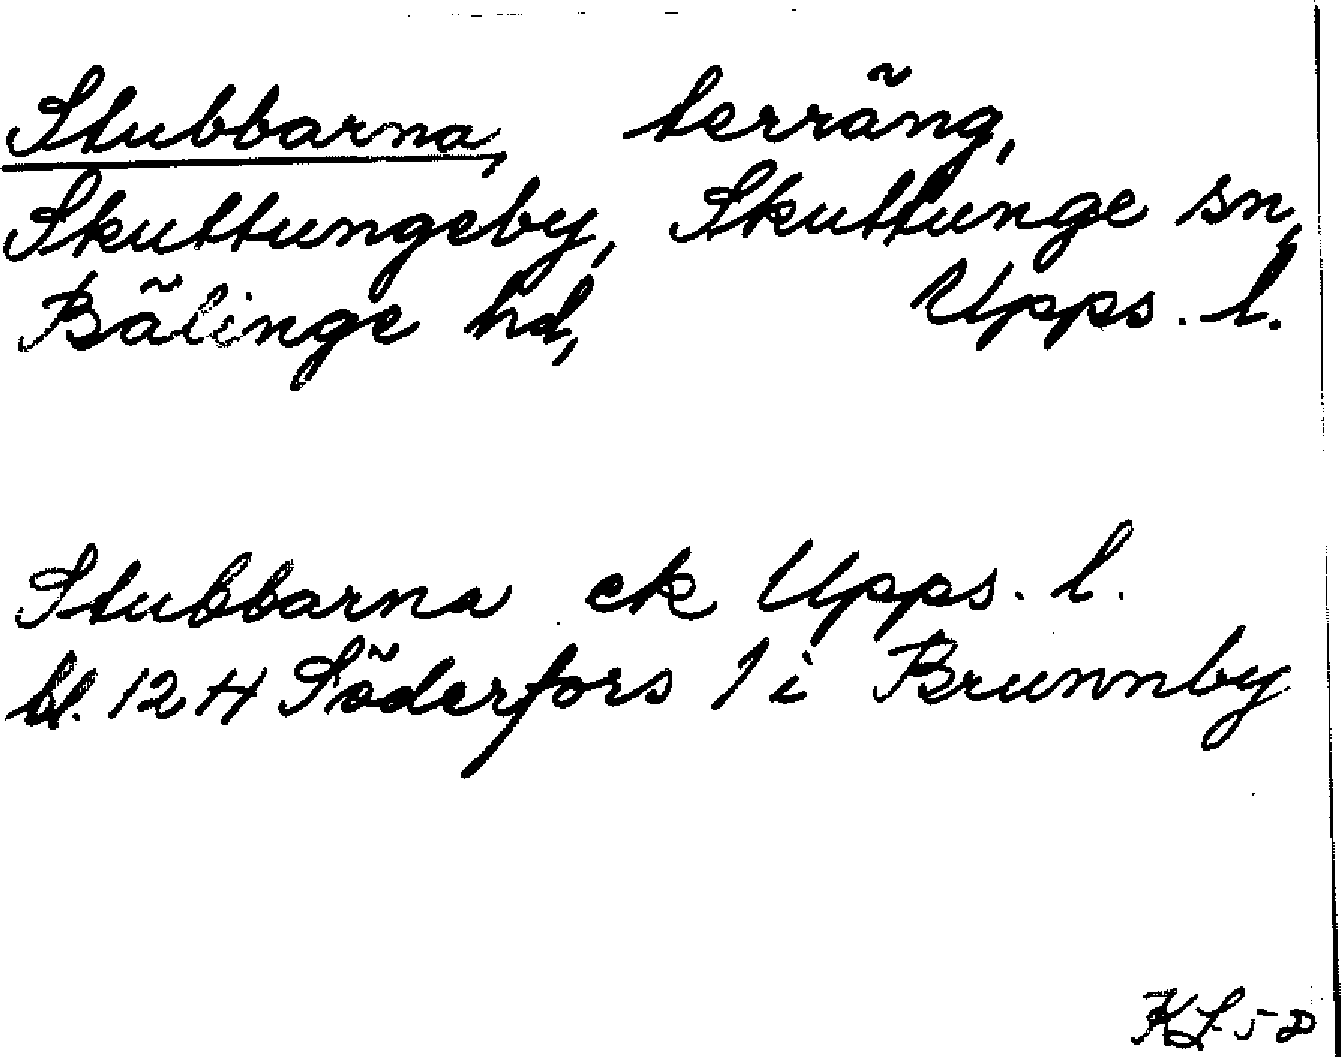 Stubbarna, terräng,
Skuttungeby, Skuttunge sn,
Bälinge hd, Upps. l.
Stubbarna ek Upps. l.
bl. 12 H Söderfors 1 i Brunnby